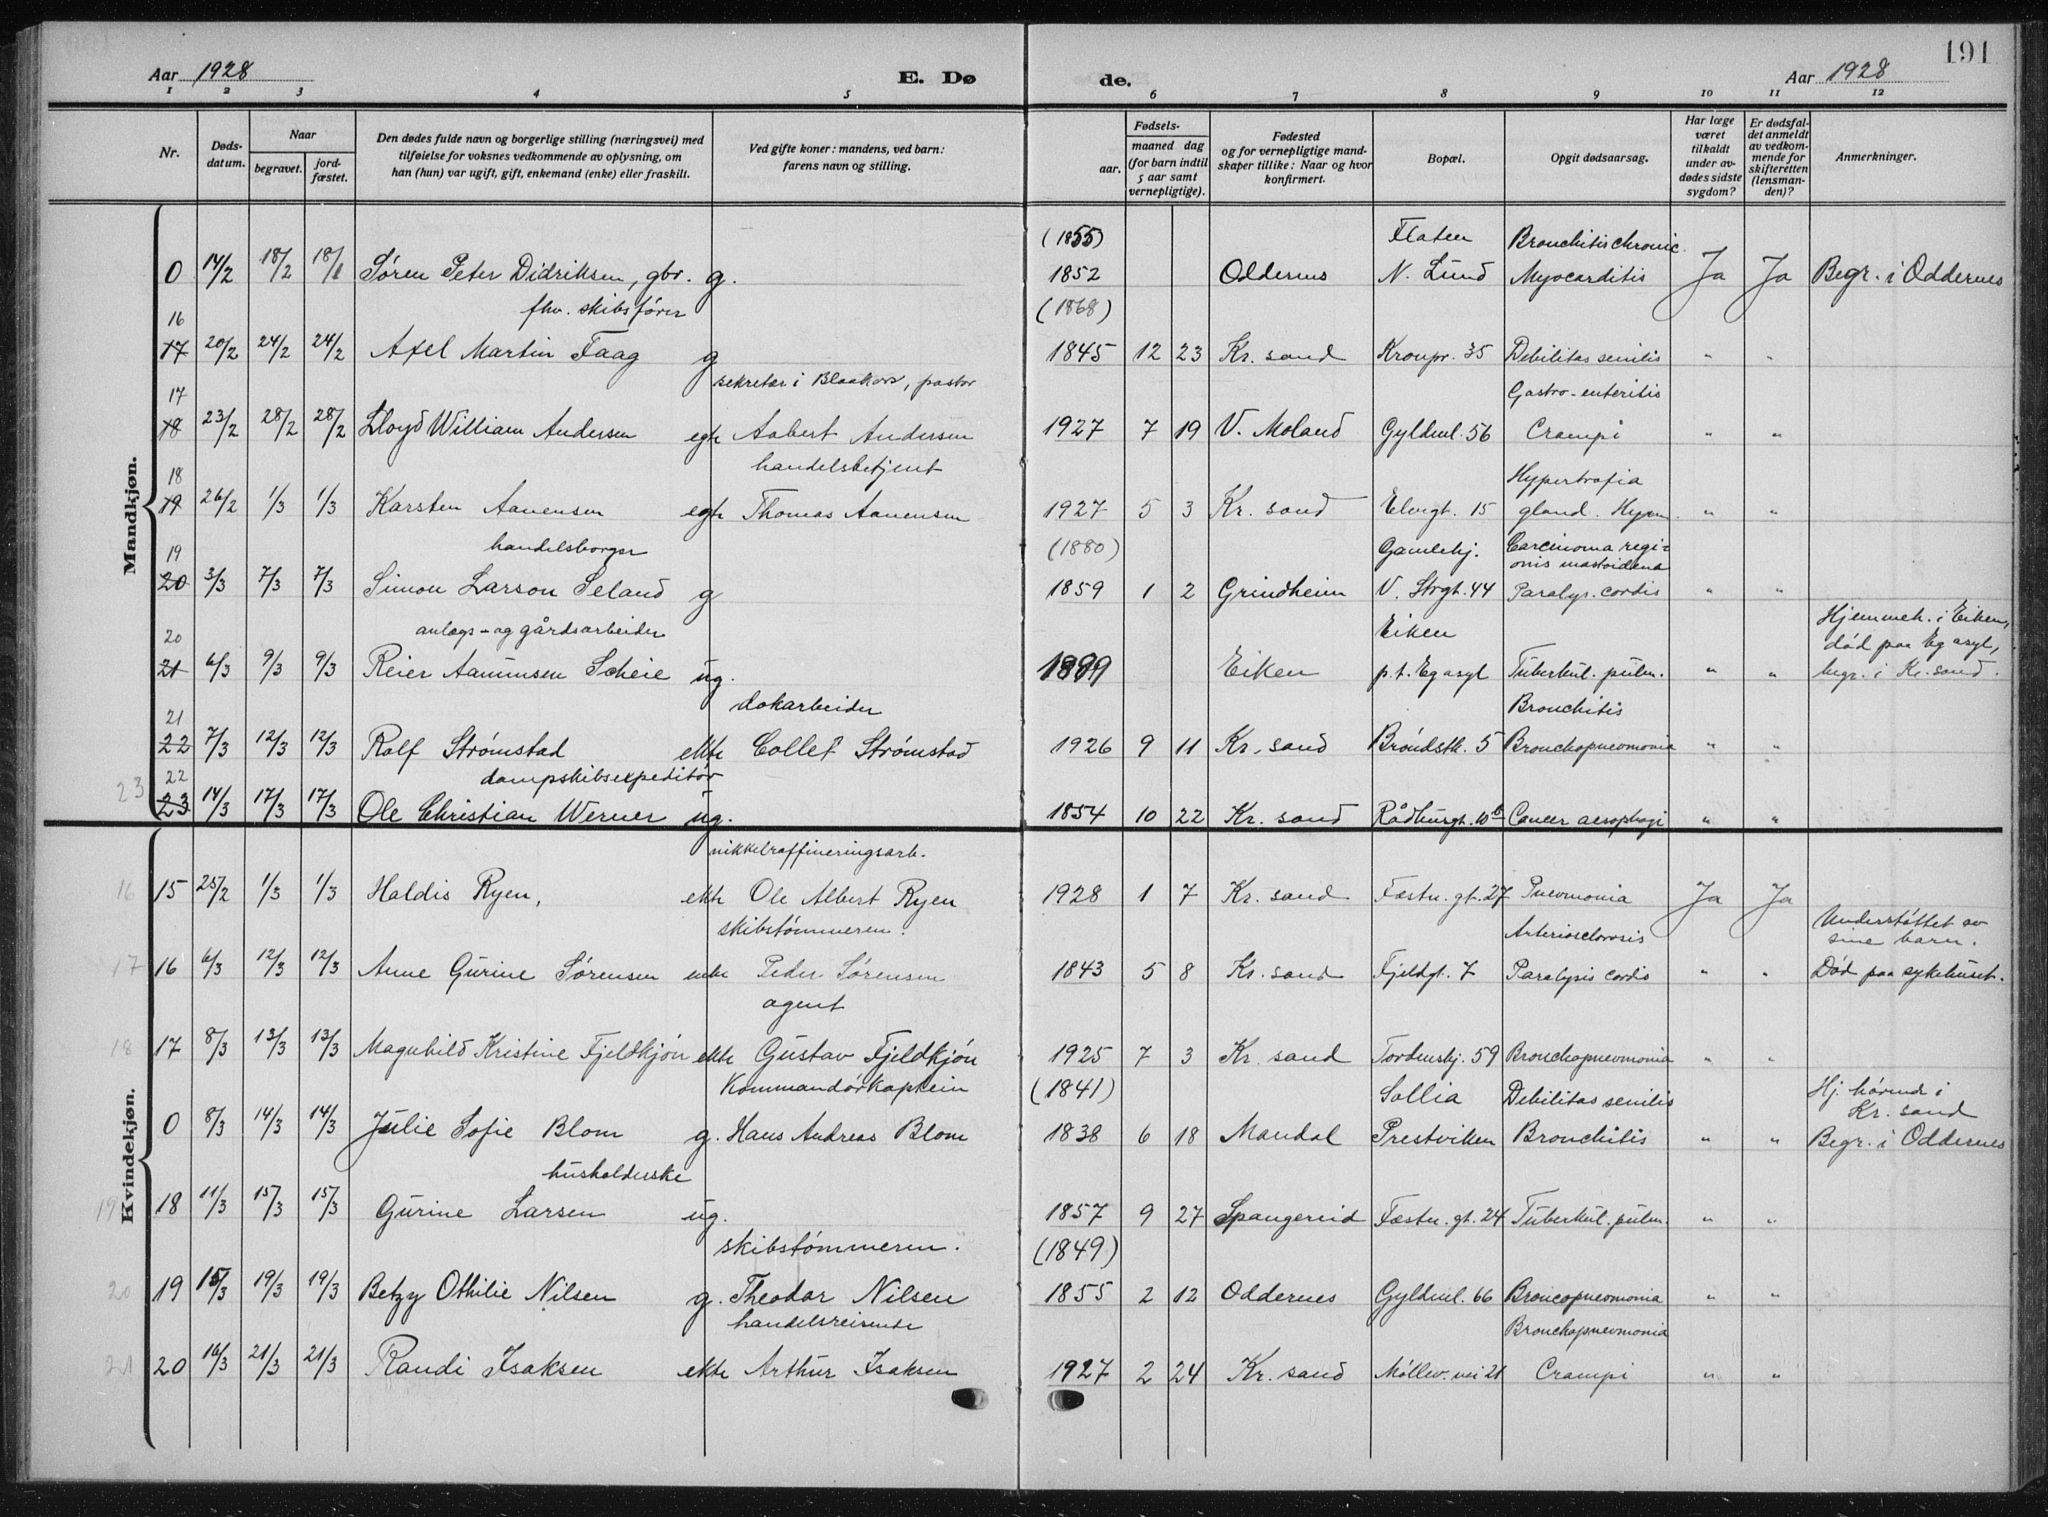 191
Aar 1928
E. Dø
de.
Aar 1928
1 2 3 4 5 6 7 8 9 10 11 12
Nr.
Døds-
datum.
Naar
begravet.
jord-
fæstet.
Den dødes fulde navn og borgerlige stilling (næringsvei) med
tilføielse for voksnes vedkommende av oplysning, om
han (hun) var ugift, gift, enkemand (enke) eller fraskilt.
Ved gifte koner: mandens, ved barn:
farens navn og stilling.
Fødsels-
aar.
maaned dag
(for barn indtil
5 aar samt
vernepligtige).
Fødested
og for vernepligtige mand-
skaper tillike: Naar og hvor
konfirmert.
Bopæl.
Opgit dødsaarsag.
Har læge
været
tilkaldt
under av-
dødes sidste
sygdom?
Er dødsfal-
det anmeldt
av vedkom-
mende for
skifteretten
(lensman-
den)?
Anmerkninger.
Mandkjøn.
(1855) Flaten Bronchitis chronic.
0 14/2 18/2 18/1 Søren Peter Didriksen, gbr. g. 1852 Oddernes N. Lund Myocarditis Ja Ja Begr. i Oddernes
16 fhv. skibsfører (1868)
17 20/2 24/2 24/2 Axel Martin Faag g 1845 12 23 Kr. sand Kronpr. 35 Debilitas senilis " "
17 sekretær i Blaakors, pastor Gastro-enteritis
18 23/2 28/2 28/2 Lloyd William Andersen egte Aabert Andersen 1927 7 19 V. Moland Gyldenl. 56 Crampi " "
18 handelsbetjent Hypertrofia
19 26/2 1/3 1/3 Karsten Aanensen egte Thomas Aanensen 1927 5 3 Kr. sand Elvegt. 15 gland. Hym. " "
19 handelsborger (1880) Gamlehj. Carcinoma regi-
onis mastoidena
20 3/3 7/3 7/3 Simon Larson Seland g 1859 1 2 Grindheim V. Strgt. 44 Paralys. cordis " "
20 anlægs- og gårdsarbeider Eiken Hjemmeh. i Eiken,
død paa Eg asyl,
21 6/3 9/3 9/3 Reier Aamunsen Scheie ug. 1899 Eiken p.t. Eg asyl Tuberkul. pulm. " " begr. i Kr. sand.
21 dokarbeider Bronchitis
22 7/3 12/3 12/3 Rolf Strømstad ekte Collet Strømstad 1926 9 11 Kr. sand Brøndstk. 5 Bronchopneumonia " "
22 dampskibsexpeditør
23 23 14/3 17/3 17/3 Ole Christian Werner ug. 1854 10 22 Kr. sand Rådhusgt. 10b Cancer aesophagi " "
Kvindekjøn.
nikkelraffineringsarb.
16 15 25/2 1/3 1/3 Haldis Ryen, ekte Ole Albert Ryen 1928 1 7 Kr. sand Fæstn. gt. 27 Pneumonia Ja Ja
skibstømmerm. Arteriosclerosis Understøttet av
sine barn.
17 16 6/3 12/3 12/3 Anne Gurine Sørensen enke Peder Sørensen 1843 5 8 Kr. sand Fjeldgt. 7 Paralysis cordis " " Død paa sykehuset.
agent
18 17 8/3 13/3 13/3 Magnhild Kristine Fjeldkjøn ekte Gustav Fjeldkjøn 1925 7 3 Kr. sand Tordenskj. 59 Bronchopneumonia " "
Kommandørkaptein (1841) Sollia Debilitas senilis Hj. hørende i
Kr. sand
0 8/3 14/3 14/3 Julie Sofie Blom g. Hans Andreas Blom 1838 6 18 Mandal Prestviken Bronchitis " " Begr. i Oddernes
husholderske
19 18 11/3 15/3 15/3 Gurine Larsen ug. 1857 9 27 Spangereid Fæstn. gt. 24 Tuberkul. pulm. " "
skibstømmerm. (1849)
20 19 15/3 19/3 19/3 Betzy Othilie Nilsen g. Theodor Nilsen 1855 2 12 Oddernes Gyldenl. 66 Broncopneumonia " "
handelsreisende Bronchopneumonia
21 20 16/3 21/3 21/3 Randi Isaksen ekte Arthur Isaksen 1927 2 24 Kr. sand Møllev. vei 21 Crampi " "